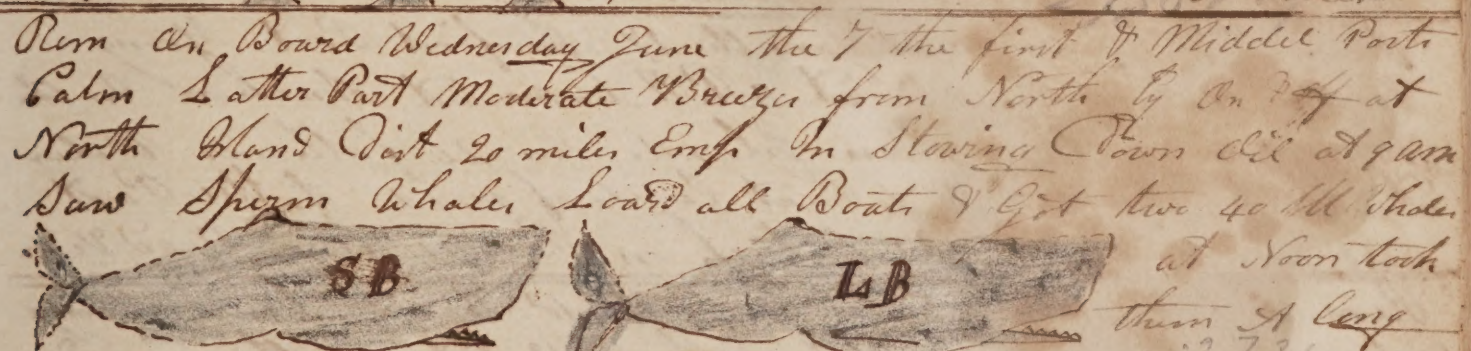 Rem On Board Wednesday June the 7 the first & Middel Parts
Calm Latter Part Moderate Breezes from North Ey On & off at
North Island Dist 20 miles Emp In Stowing Down Oil at 9 am
Saw Sperm Whales Loard all Boats & Got two 40 bbl Whales
SB LB at Noon took
them A long